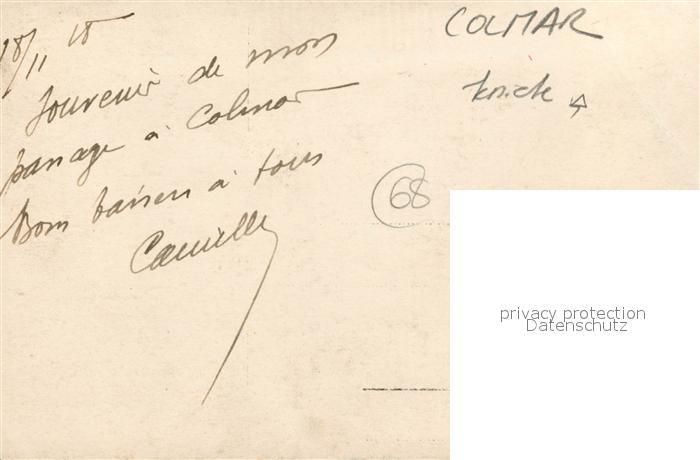 18/11 18
Souvenir de mon
passage à Colmar
Bons baisers à tous
Camille
COLMAR
knick
68
privacy protection
Datenschutz